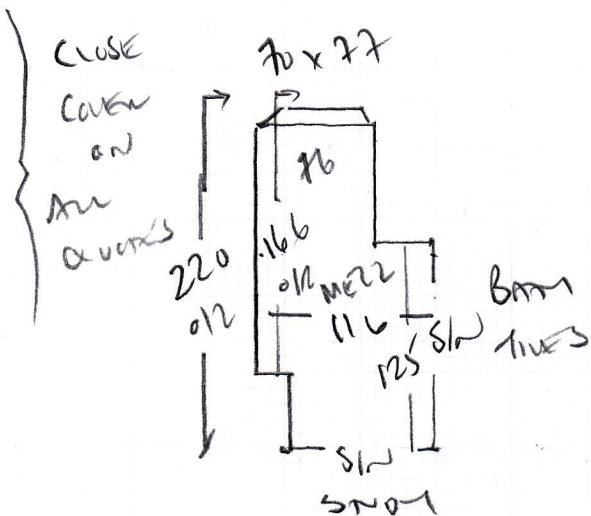 CLOSE
COVER
ON
ALL
QUOTES
70 x 77
76
220
O/R
.166
O/R
ME22
116
125
S/N
BATH
S/N